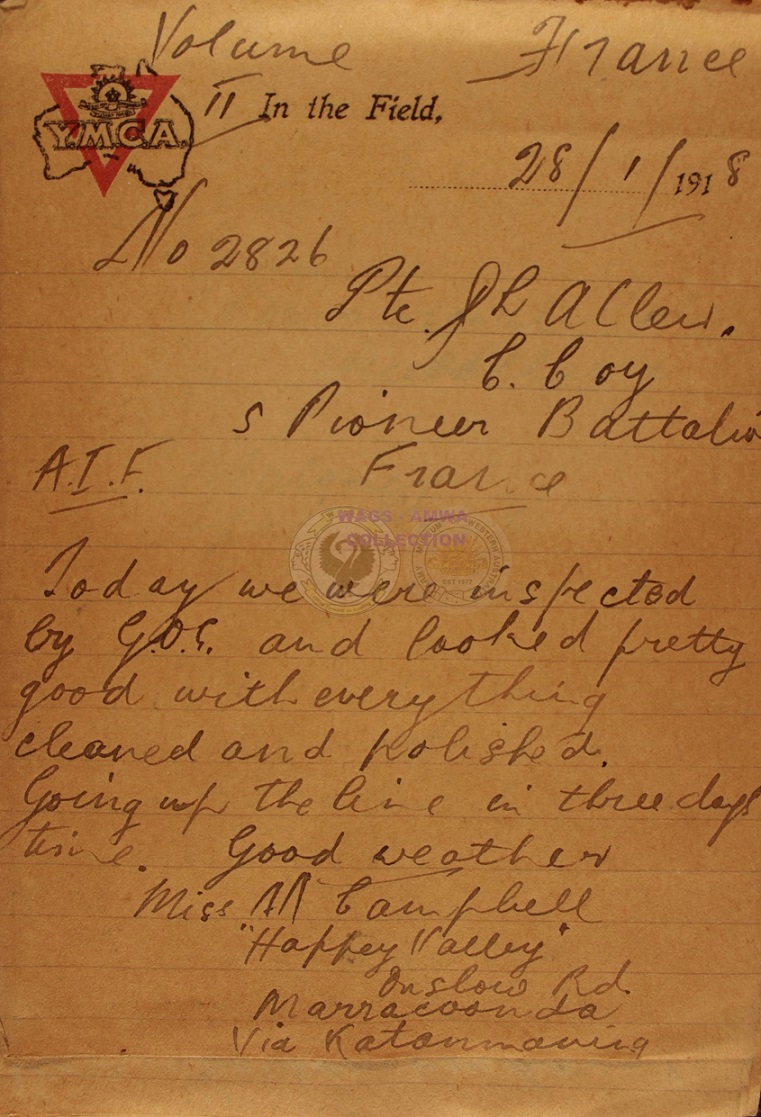 Volume France
Y.M.C.A.
II In the Field,
28/1/1918
No 2826
Pte. J L Allen.
C. Coy
5 Pioneer Battalion
A.I.F. France
WAGS - AMWA
COLLECTION
Today we were inspected
by G.O.C. and looked pretty
good with everything
cleaned and polished.
Going up the line in three days
time. Good weather
Miss M Campbell
"Happey Valley"
Onslow Rd.
Marracoonda
Via Katanning